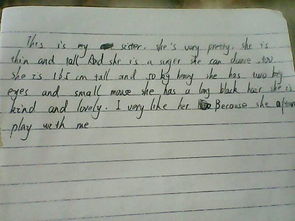 This is my sister. she's very pretty. she is
thin and tall And she is a singer she can dance too
she is 165 cm tall and 50 kg heavy she has two big
eyes and small mouse she has a long black hair she is
kind and lovely. I very like her Because she often
play with me